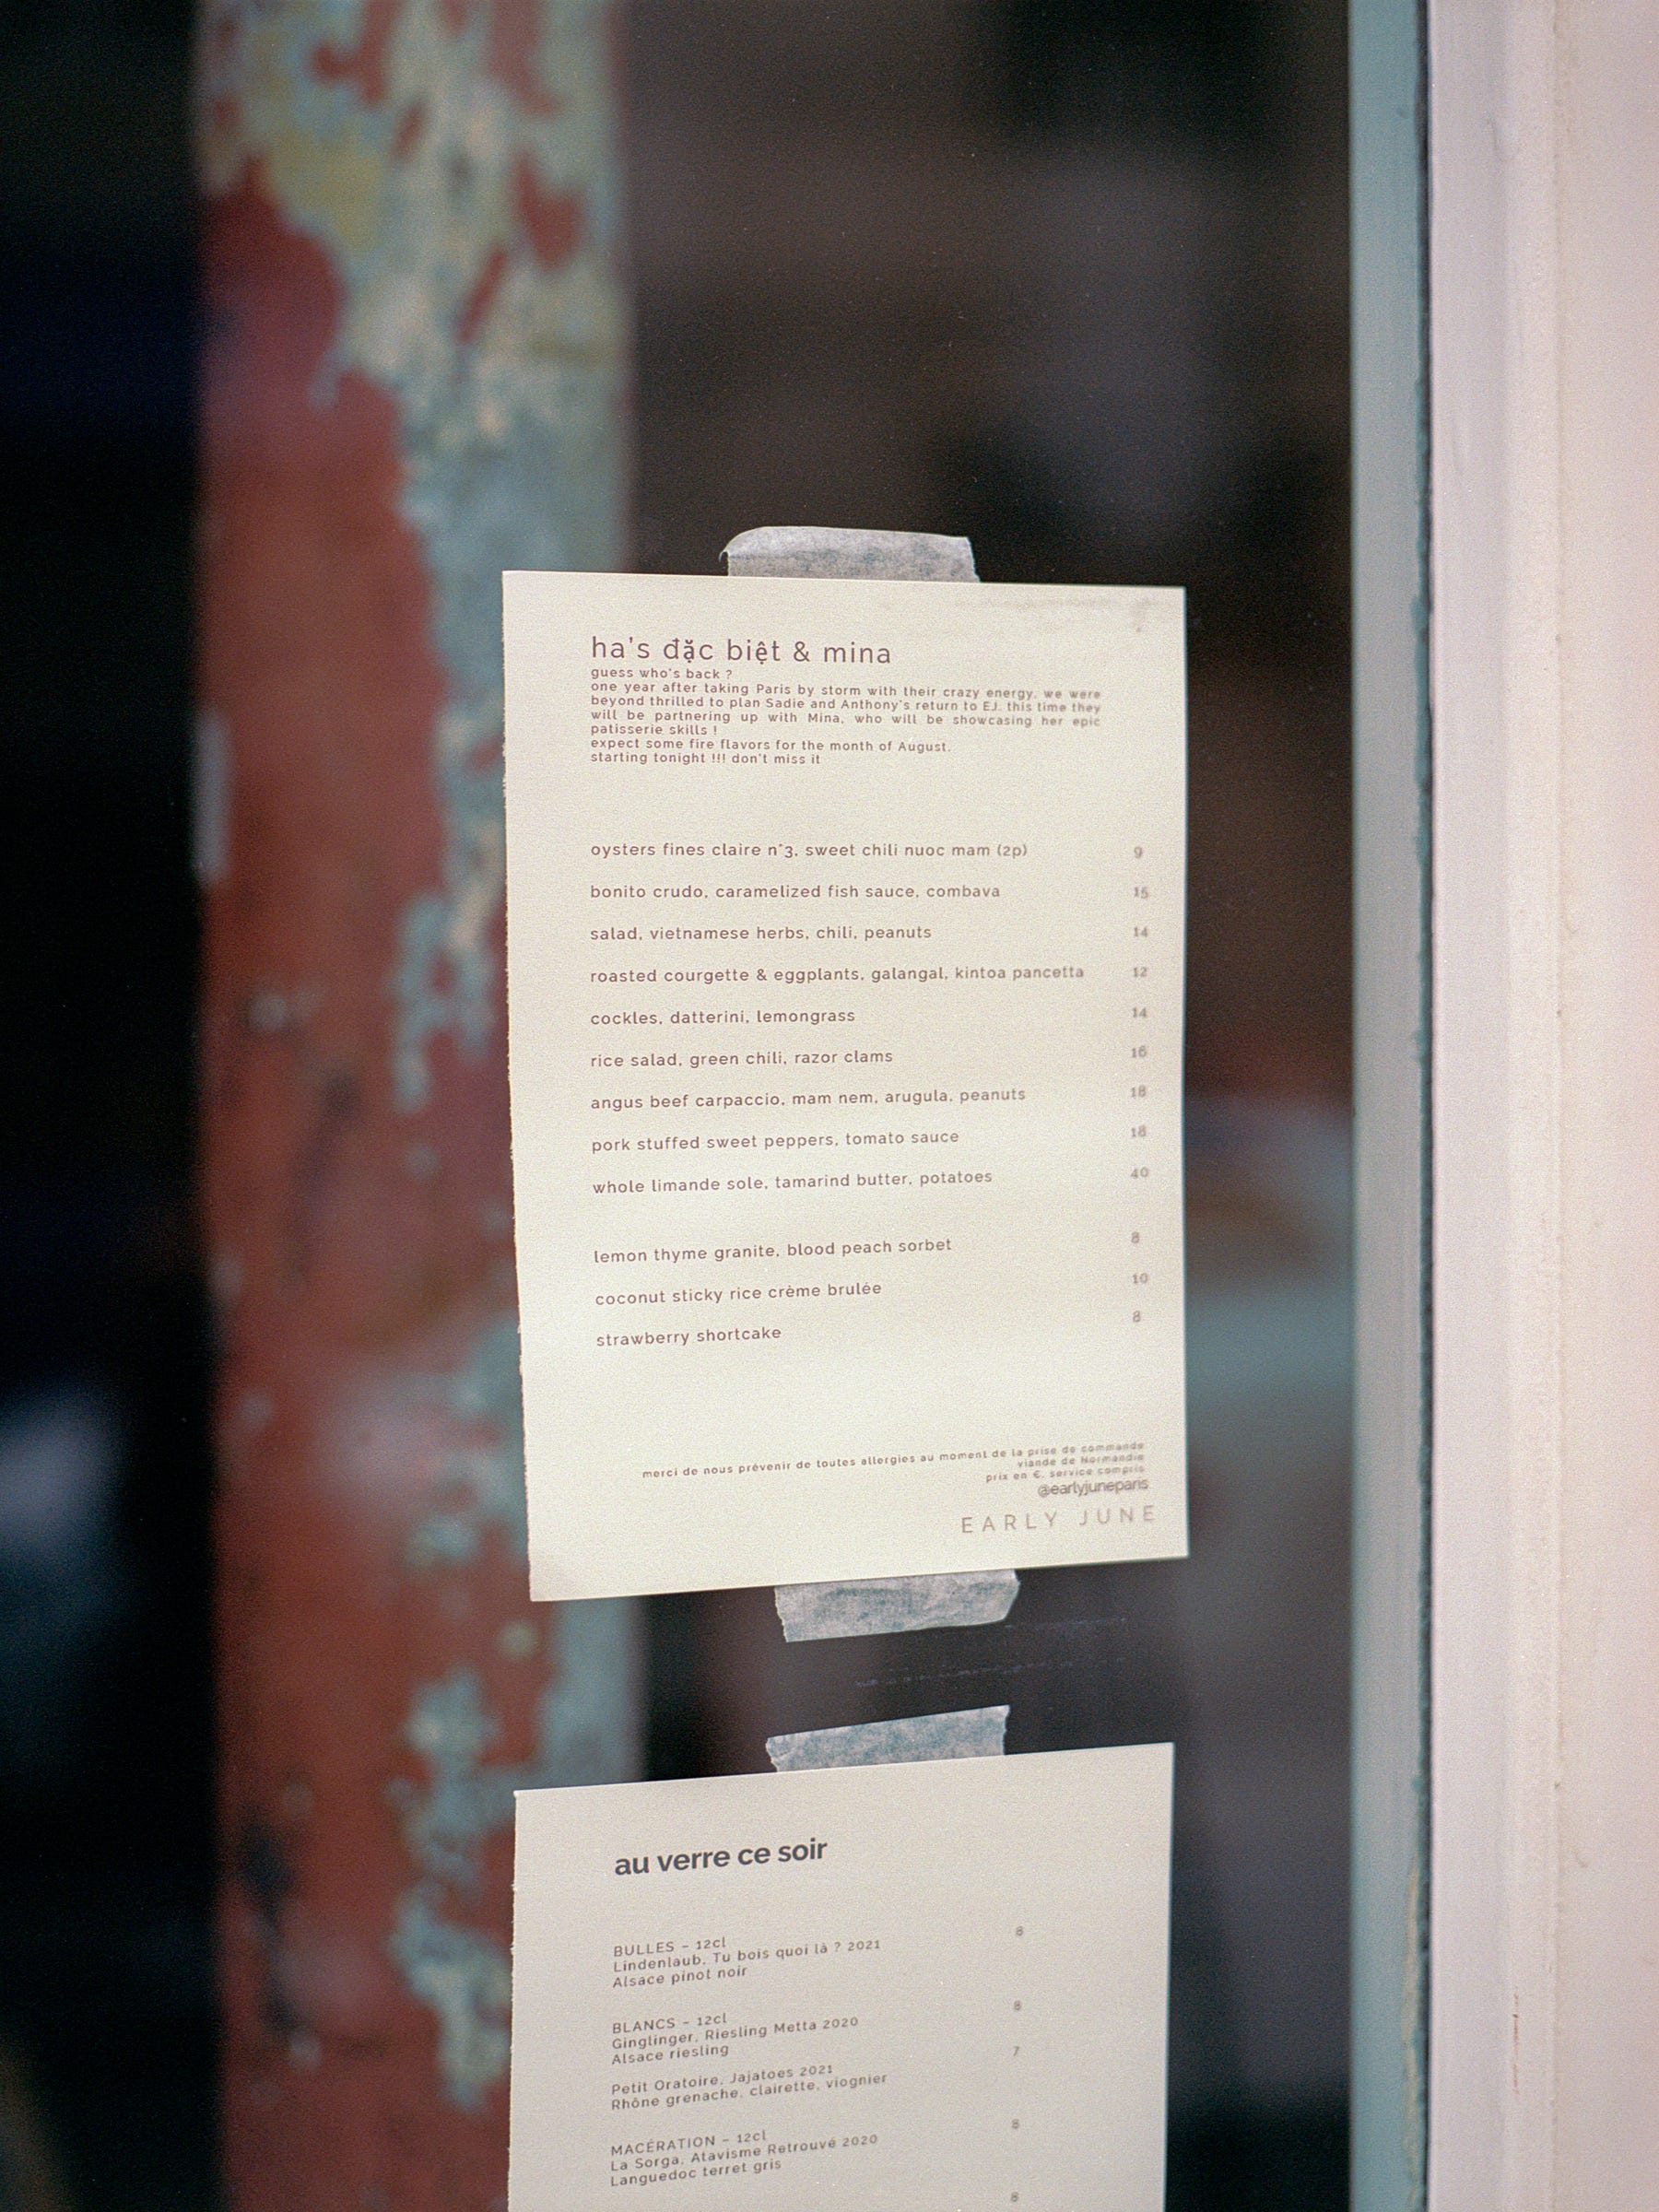 ha's đặc biệt & mina
guess who's back ?
one year after taking Paris by storm with their crazy energy, we were
beyond thrilled to plan Sadie and Anthony's return to EJ. this time they
will be partnering up with Mina, who will be showcasing her epic
patisserie skills !
expect some fire flavors for the month of August.
starting tonight !!! don't miss it
oysters fines claire n°3, sweet chili nuoc mam (2p) 9
bonito crudo, caramelized fish sauce, combava 15
salad, vietnamese herbs, chili, peanuts 14
roasted courgette & eggplants, galangal, kintoa pancetta 12
cockles, datterini, lemongrass 14
rice salad, green chili, razor clams 16
angus beef carpaccio, mam nem, arugula, peanuts 18
pork stuffed sweet peppers, tomato sauce 18
whole limande sole, tamarind butter, potatoes 40
lemon thyme granite, blood peach sorbet 8
coconut sticky rice crème brulée 10
strawberry shortcake 8
merci de nous prévenir de toutes allergies au moment de la prise de commande
viande de Normandie
prix en €, service compris
@earlyjuneparis
EARLY JUNE
au verre ce soir
BULLES – 12cl
Lindenlaub, Tu bois quoi là ? 2021
Alsace pinot noir
BLANCS – 12cl 8
Ginglinger, Riesling Metta 2020
Alsace riesling
Petit Oratoire, Jajatoes 2021 7
Rhône grenache, clairette, viognier
MACÉRATION – 12cl
La Sorga, Atavisme Retrouvé 2020
Languedoc terret gris
8